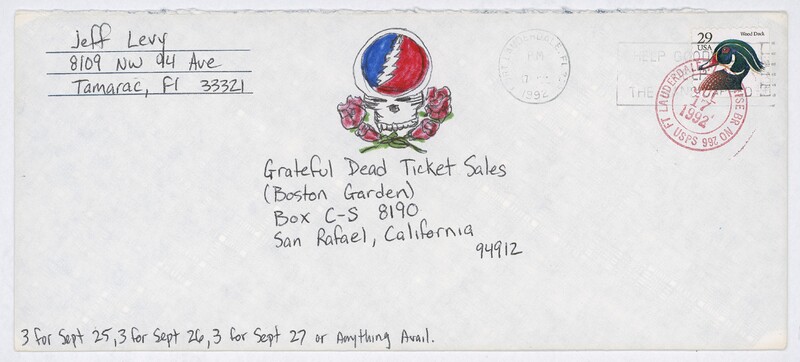 Jeff Levy
8109 NW 94 Ave
Tamarac, Fl 33321
FORT LAUDERDALE, FL
PM
1992
HELP GOOD
THE
29
USA
Wood Duck
FT LAUDERDALE
BR NO 266
USPS
17
1992
Grateful Dead Ticket Sales
(Boston Garden)
Box C-S 8190
San Rafael, California
94912
3 for Sept 25, 3 for Sept 26, 3 for Sept 27 or Anything Avail.